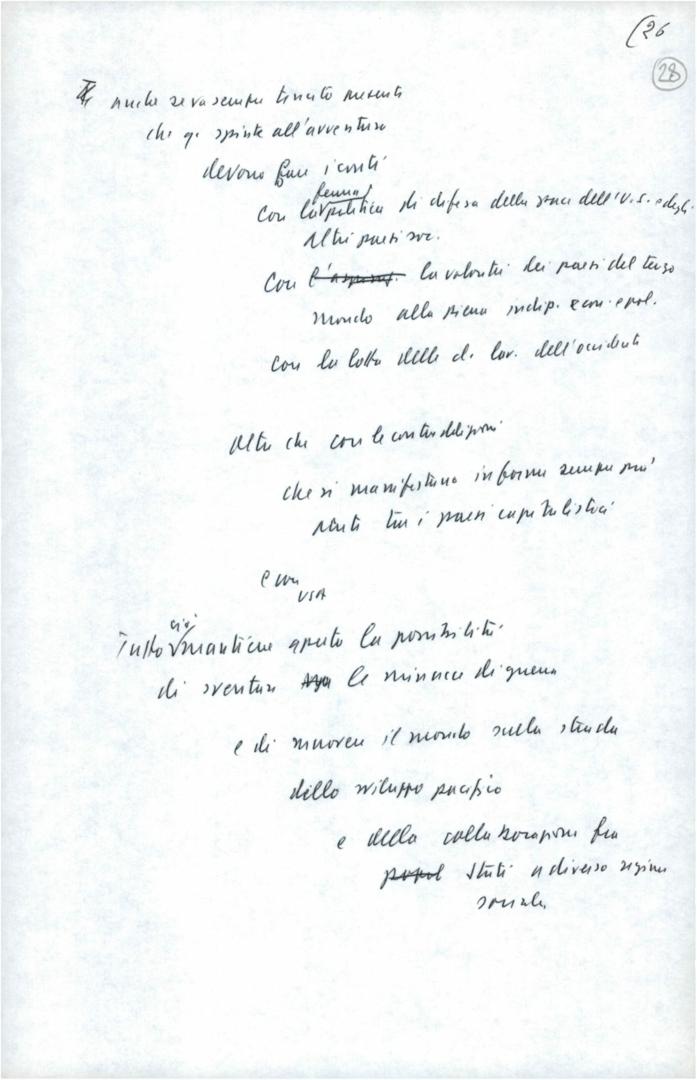 (26
28
anche se va sempre tenuto presente
che q. spinte all'avventura
devono fare i conti
ferma
con la politica di difesa della pace dell'U.S. e degli
altri paesi soc.
con la volontà dei paesi del terzo
mondo alla piena indip. econ. e pol.
con la lotta delle cl. lav. dell'occidente
oltre che con le contraddizioni
che si manifestano in forme sempre più
acute tra i paesi capitalistici
e con
USA
ciò
Tutto mantiene aperta la possibilità
di sventare le minacce di guerra
e di muovere il mondo sulla strada
dello sviluppo pacifico
e della collaborazione fra
popol stati a diverso regime
sociale